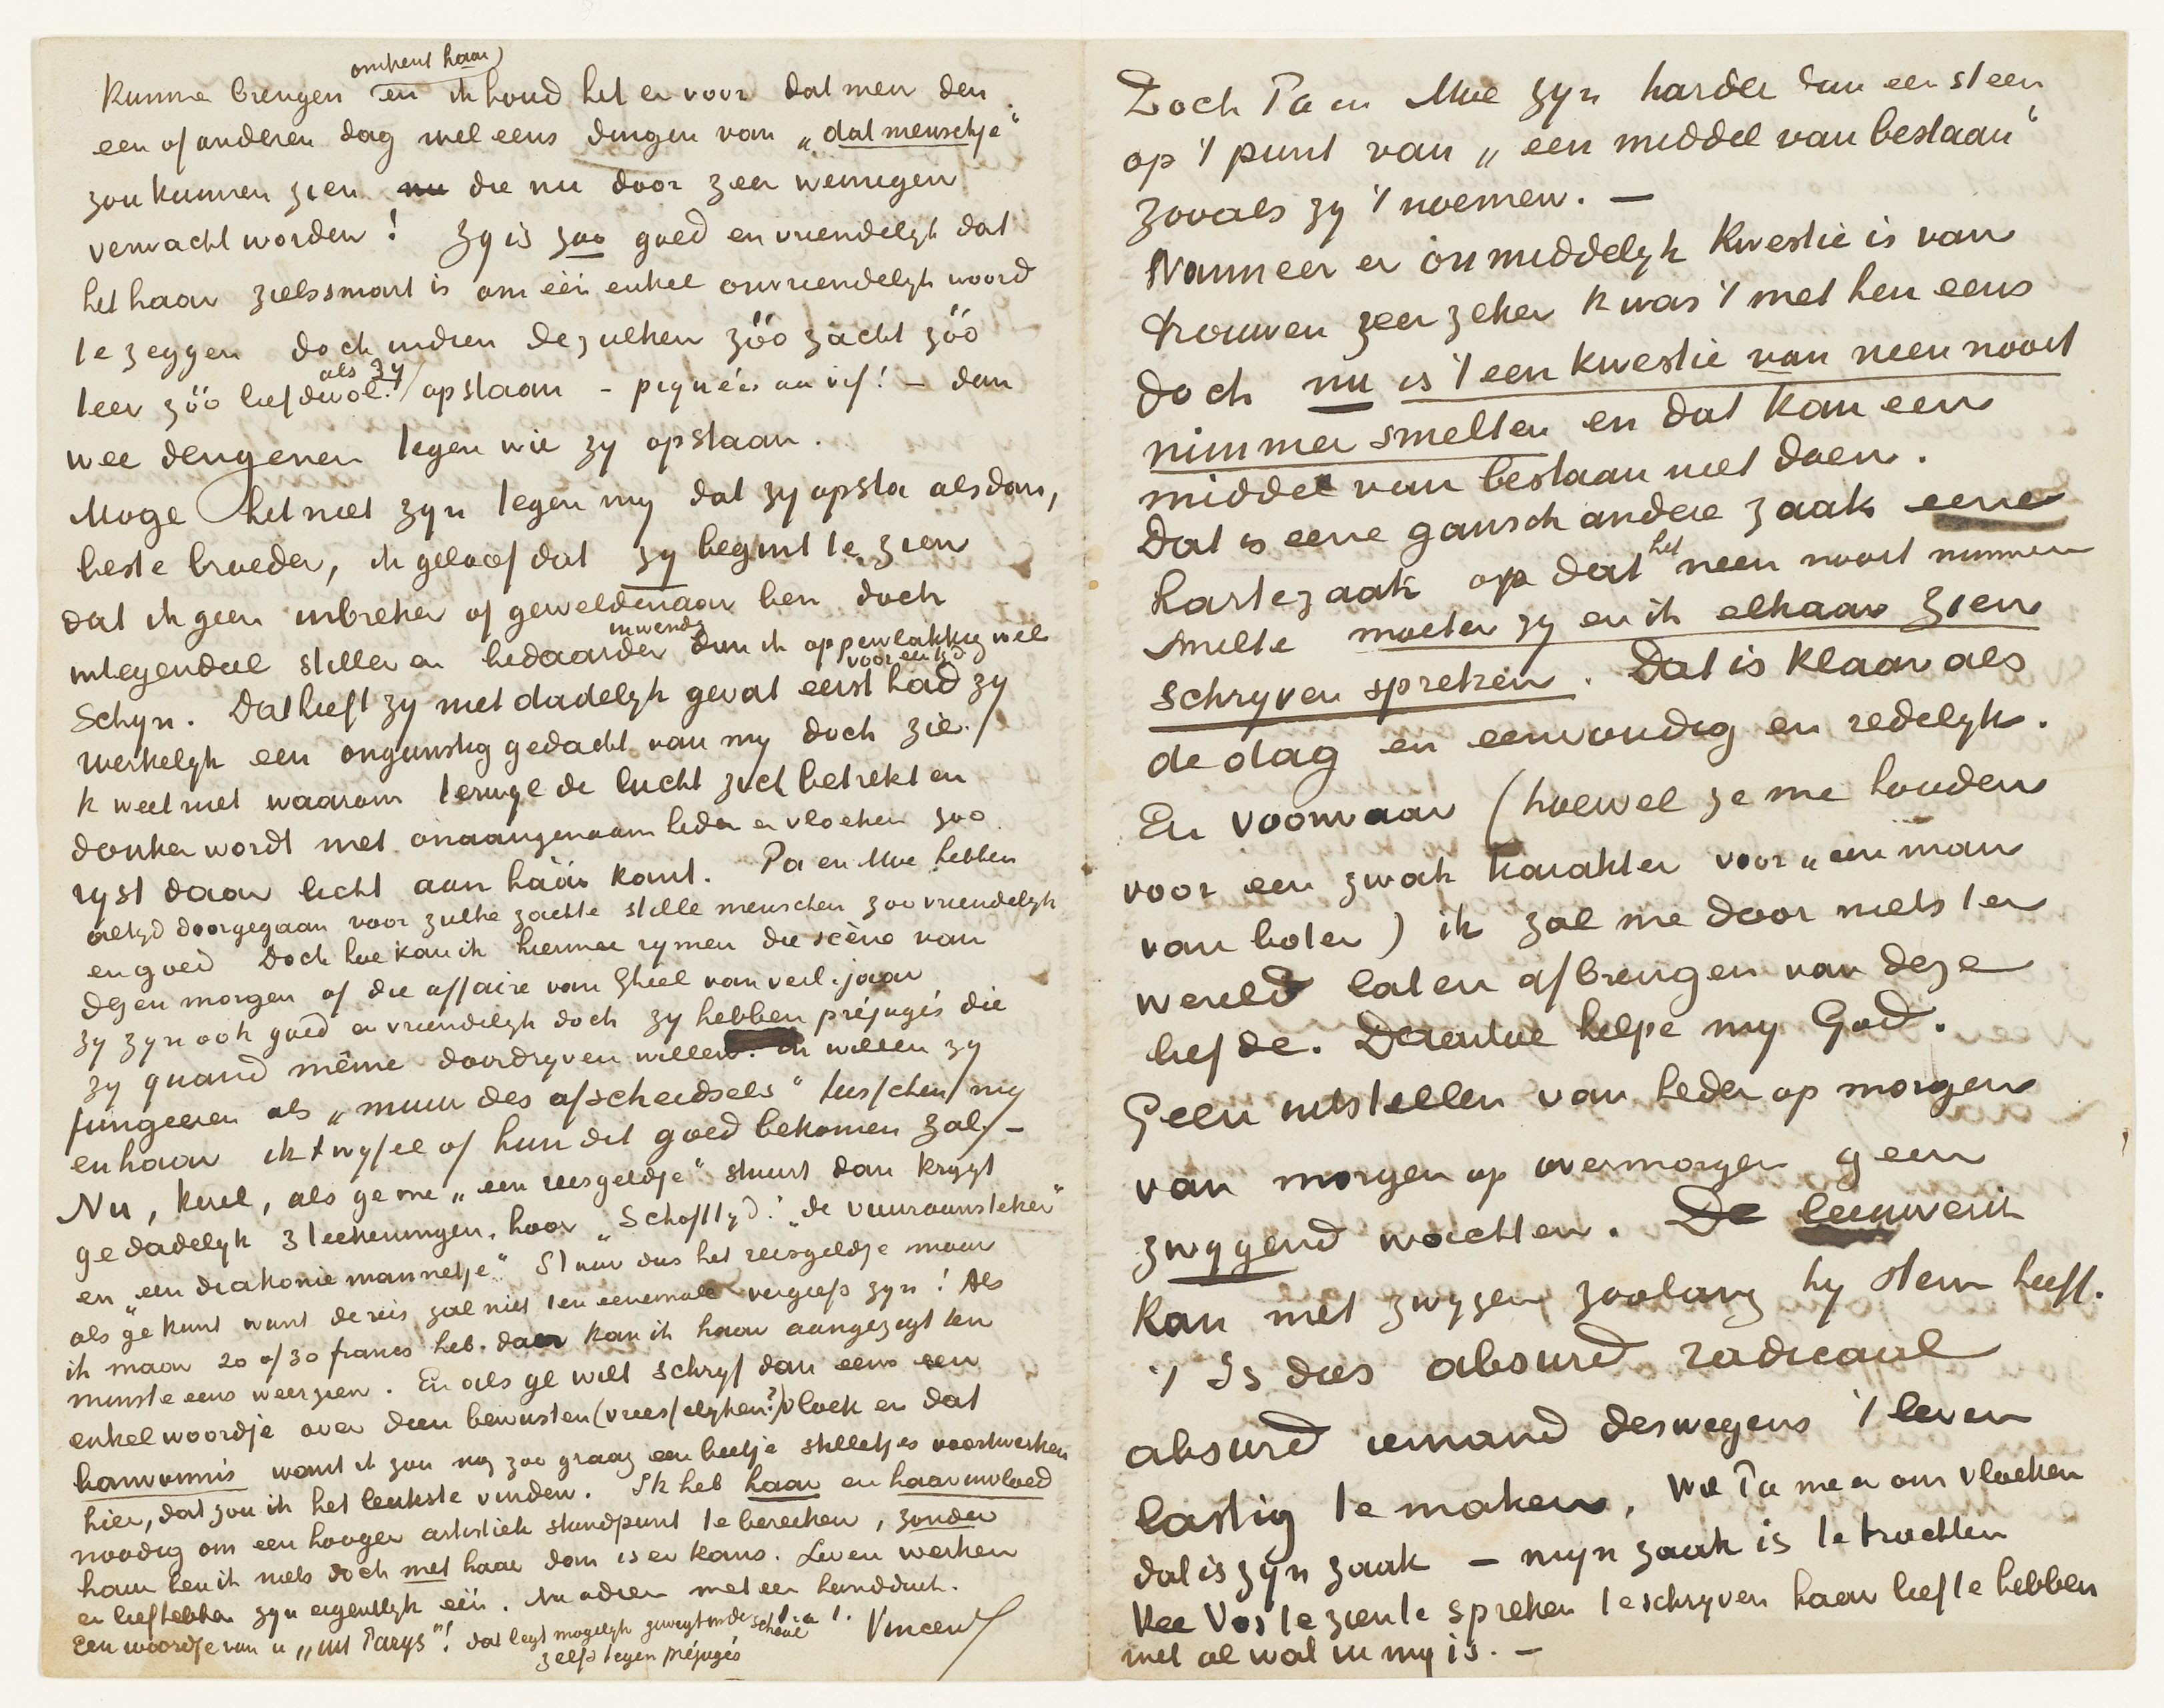 omtrent haar
kunne brengen en ik houd het er voor dat men den
een of anderen dag wel eens dingen van „dat menschje”
zou kunnen zien nu die nu door zeer weinigen
verwacht worden! Zy is zoo goed en vriendelyk dat
het haar zielssmart is om één enkel onvriendelyk woord
te zeggen doch indien dezulken zóó zacht zóó
teer zóó liefdevol als zy opstaan – piqués au vif! – dan
wee dengenen tegen wie zy opstaan.
Moge het niet zyn tegen my dat zy opsta alsdan,
beste broeder, ik geloof dat zy begint te zien
dat ik geen inbreker of geweldenaar ben doch
integendeel stiller en bedaarder inwendig dan ik oppervlakkig wel
schyn. Dat heeft zy niet dadelyk gevat eerst voor een tyd had zy
werkelyk een ongunstig gedacht van my doch zie.
k weet niet waarom terwyl de lucht zich betrekt en
donker wordt met onaangenaamheden en vloeken zoo
ryst daar licht aan háár kant. Pa en Moe hebben
altyd doorgegaan voor zulke zachte stille menschen zoo vriendelyk
en goed Doch hoe kan ik hiermee rymen die scène van
dezen morgen of die affaire van Gheel van verl. jaar
zy zyn ook goed en vriendelyk doch zy hebben préjugés die
zy quand même doordryven willen. En willen zy
fungeeren als „muur des afscheidsels” tusschen my
en haar ik twyfel of hun dit goed bekomen zal. –
Nu, kerel, als ge me „een reisgeldje” stuurt dan krygt
ge dadelyk 3 teekeningen, hoor „Schofttyd” „de vuuraansteker”
en „een diakoniemannetje” Stuur dus het reisgeldje maar
als ge kunt want de reis zal niet ten eenemale vergeefs zyn! Als
ik maar 20 of 30 francs heb. dan kan ik haar aangezigt ten
minste eens weerzien. En als ge wilt schryf dan eens een
enkel woordje over dien bewusten (vreesselyken?) vloek en dat
banvonnis want ik zou nog zoo graag een beetje stilletjes voortwerken
hier, dat zou ik het leukste vinden. Ik heb haar en haar invloed
noodig om een hooger artistiek standpunt te bereiken, zonder
haar ben ik niets doch met haar dan is er kans. Leven werken
en liefhebben zyn eigentlyk één. Nu adieu met een handdruk.
t. à t. Vincent
Een woordje van u „uit Parys”! dat legt mogelyk gewigt in de schaal
zelfs tegen préjugés
Doch Pa en Moe zyn harder dan een steen
op 't punt van „een middel van bestaan”
zooals zy 't noemen. –
Wanneer er onmiddelyk kwestie is van
trouwen zeer zeker k was 't met hen eens
doch nu is 't een kwestie van neen nooit
nimmer smelten en dat kan een
middel van bestaan niet doen.
Dat is eene gansch andere zaak eene
hartezaak opdat het neen nooit nimmer
smelte moeten zy en ik elkaar zien
schryven spreken. Dat is klaar als
de dag en eenvoudig en redelyk.
En voorwaar (hoewel ze me houden
voor een zwak karakter voor „een man
van boter) ik zal me door niets ter
wereld laten afbrengen van deze
liefde. Daartoe helpe my God.
Geen uitstellen van heden op morgen
van morgen op overmorgen geen
zwygend wachten. De leeuwerik
kan niet zwygen zoolang hy stem heeft.
't Is dus absurd radicaal
absurd iemand deswegens 't leven
lastig te maken. Wil Pa me er om vloeken
dat is zyn zaak – myn zaak is te trachten
Kee Vos te zien te spreken te schryven haar lief te hebben
met al wat in my is. –